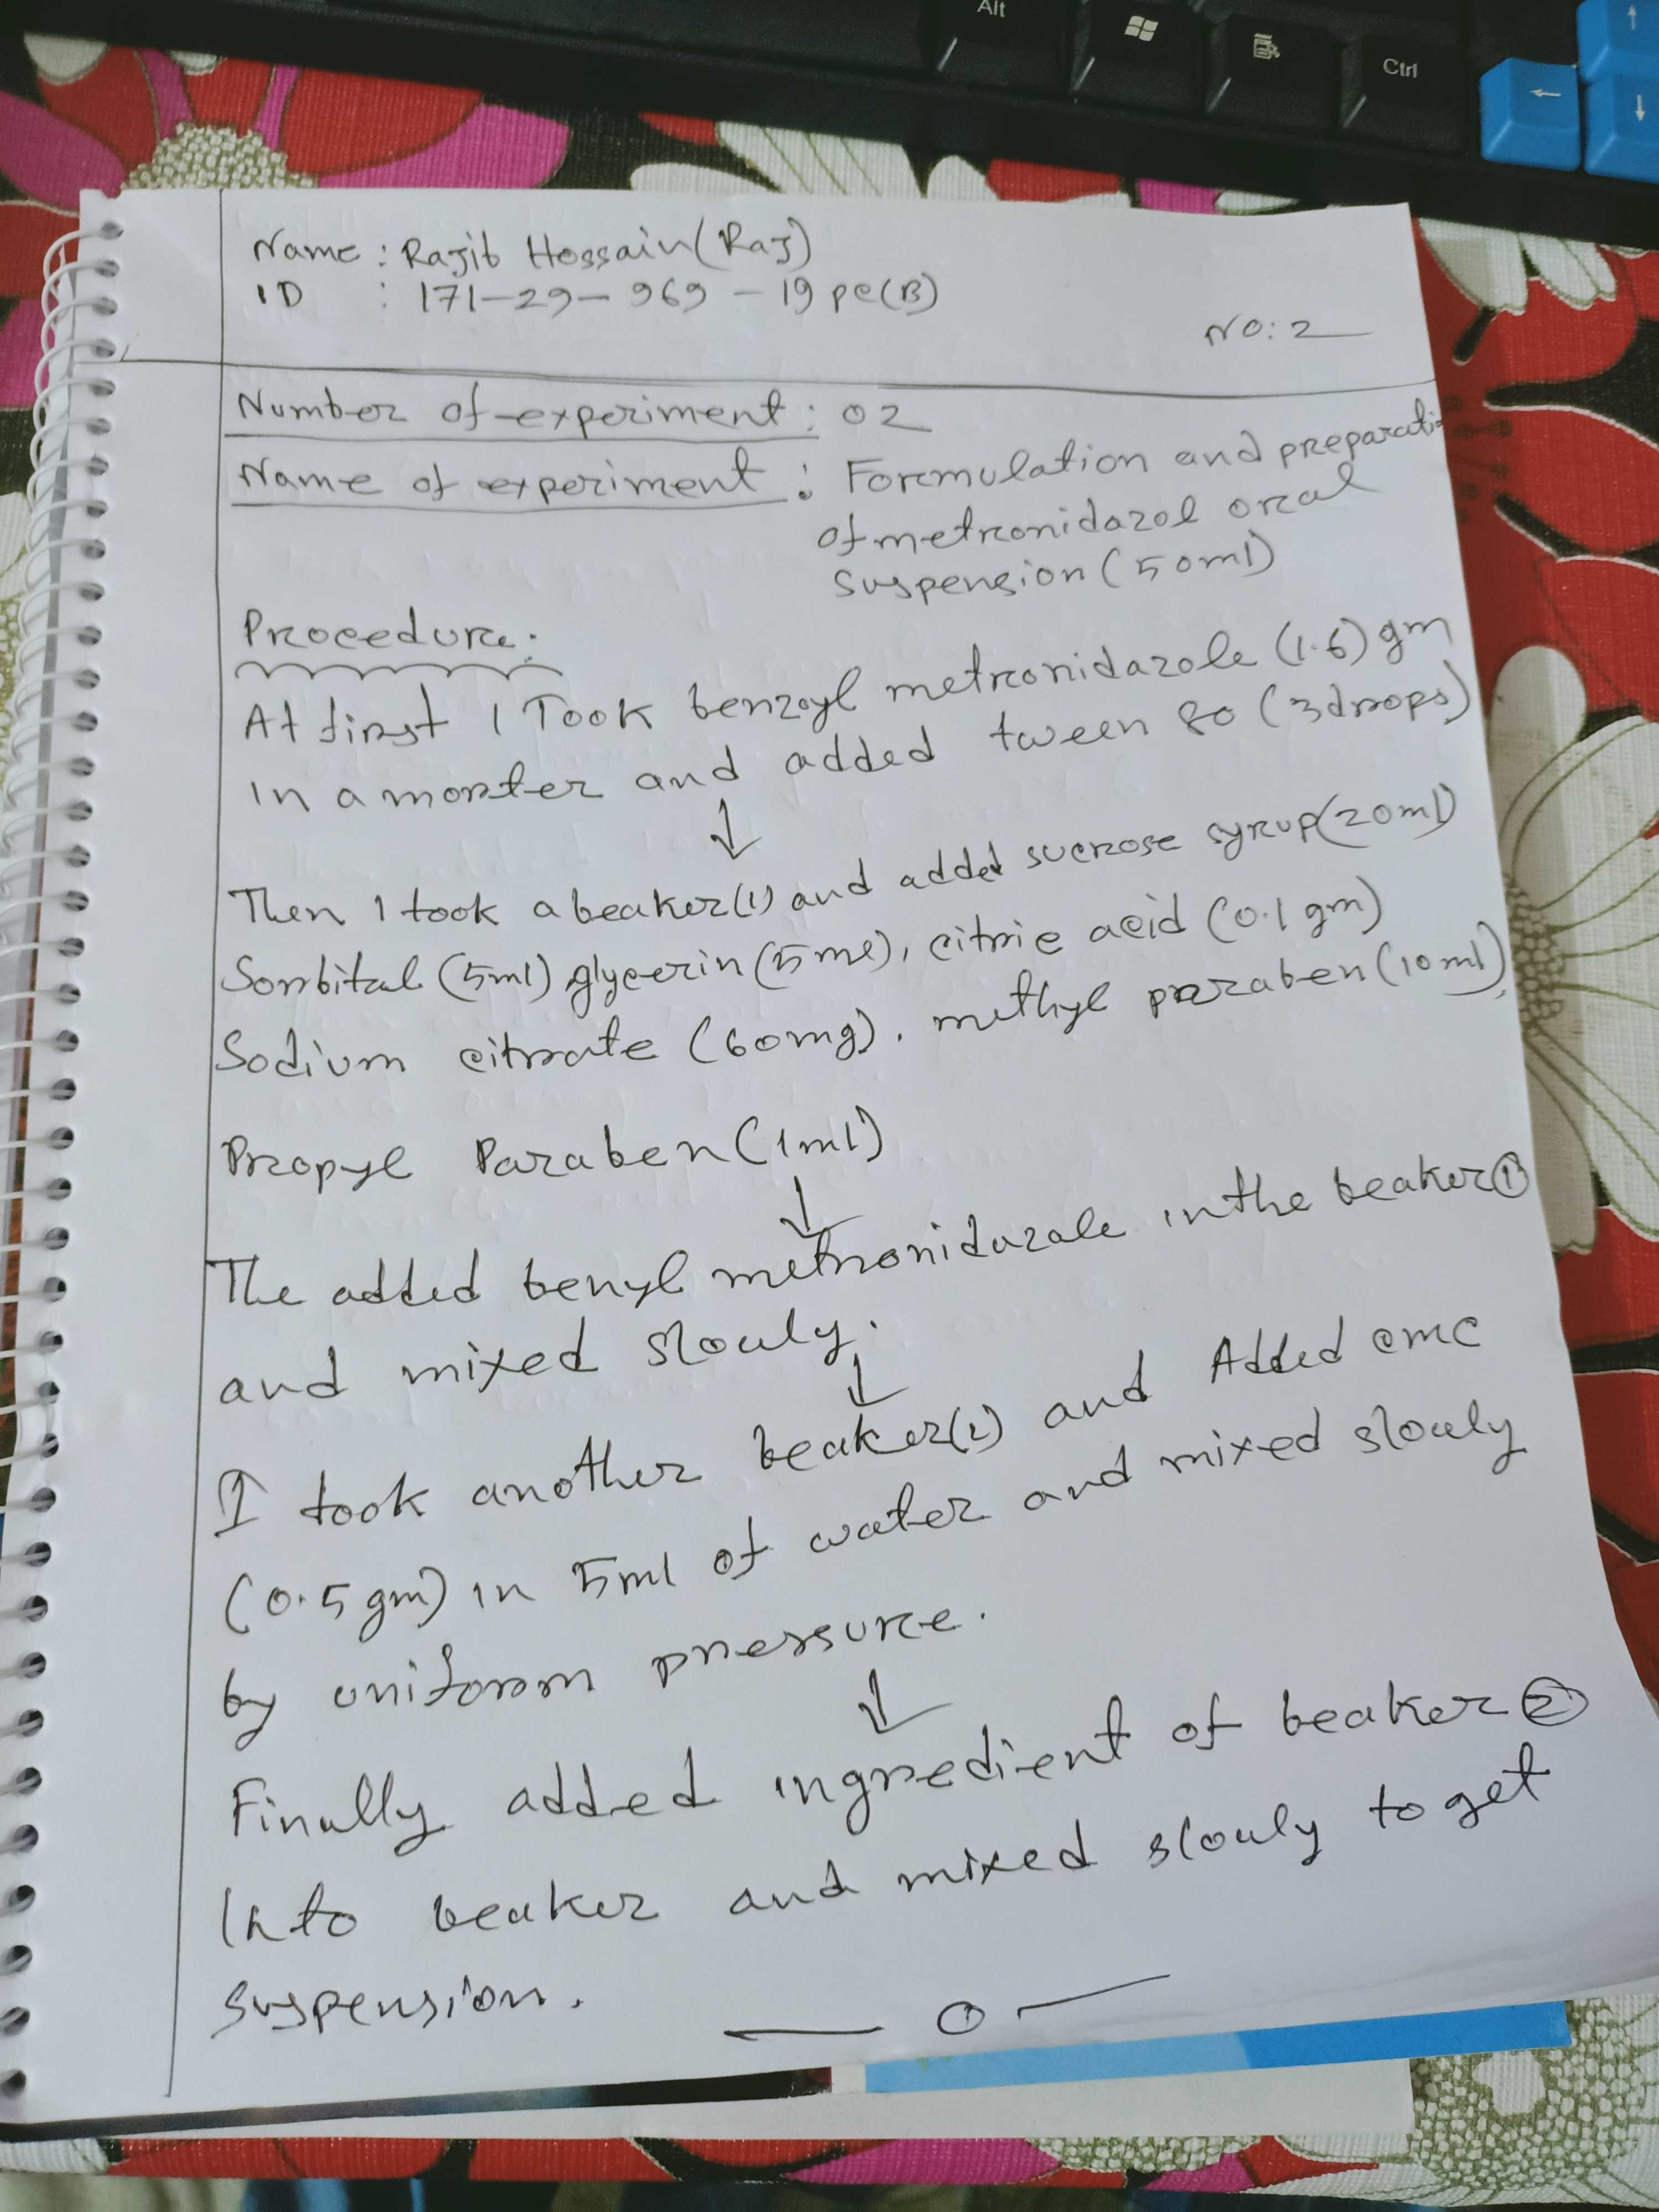 Alt
Ctrl
Name : Rajib Hossain (Raj)
ID : 171-29-969-19 pc(B)
NO: 2
Number of experiment : 02
Name of experiment : Formulation and preparati
of metronidazol oral
suspension (50ml)
Procedure:
At first I Took benzoyl metronidazole (1.6) gm
in a morter and added tween 80 (3drops)
↓
Then I took a beaker(1) and added sucrose syrup(20ml)
Sorbital (5ml) glycerin (5ml), citric acid (0.1 gm)
Sodium citrate (60mg). methyl paraben (10ml),
Propyl Paraben (1ml)
↓
The added benyl metronidazole in the beaker ①
and mixed slowly.
↓
I took another beaker(2) and Added cmc
(0.5 gm) in 5ml of water and mixed slowly
by uniform pressure.
↓
Finally added ingredient of beaker ②
Into beaker and mixed slowly to get
suspension.